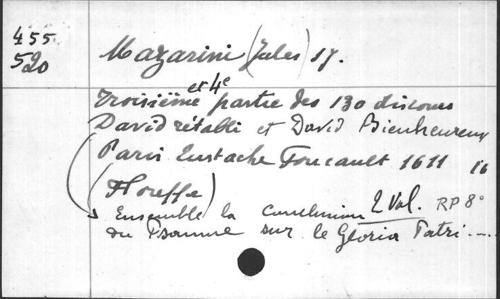 455.
520
Mazarini (Jules) 17.
et 4e
troisième partie des 130 discours
David rétabli et David Bienheureux
Paris Eustache Foucault 1611 16
(Houffe)
Ensemble la conclusion 2 Vol. RP 8°
du Psaume sur le Gloria Patri ...